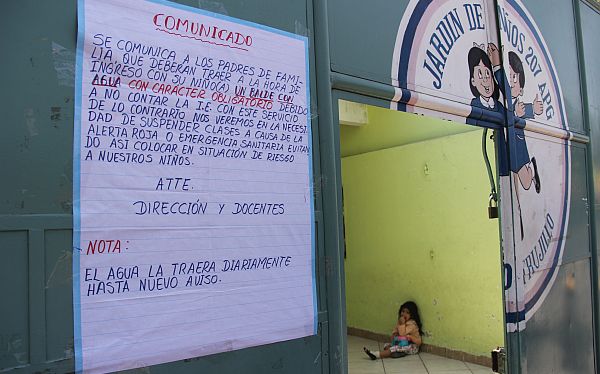 COMUNICADO
SE COMUNICA A LOS PADRES DE FAMI-
LIA QUE DEBERAN TRAER A LA HORA DE
INGRESO CON SU NIÑO(A) UN BALDE CON
AGUA CON CARÁCTER OBLIGATORIO DEBIDO
A NO CONTAR LA I.E CON ESTE SERVICIO
DE LO CONTRARIO NOS VEREMOS EN LA NECESI
DAD DE SUSPENDER CLASES A CAUSA DE LA
ALERTA ROJA O EMERGENCIA SANITARIA EVITAN
DO ASI COLOCAR EN SITUACIÓN DE RIESGO
A NUESTROS NIÑOS.
ATTE.
DIRECCIÓN Y DOCENTES
NOTA:
EL AGUA LA TRAERA DIARIAMENTE
HASTA NUEVO AVISO.
JARDIN DE NIÑOS 207 APG
TRUJILLO